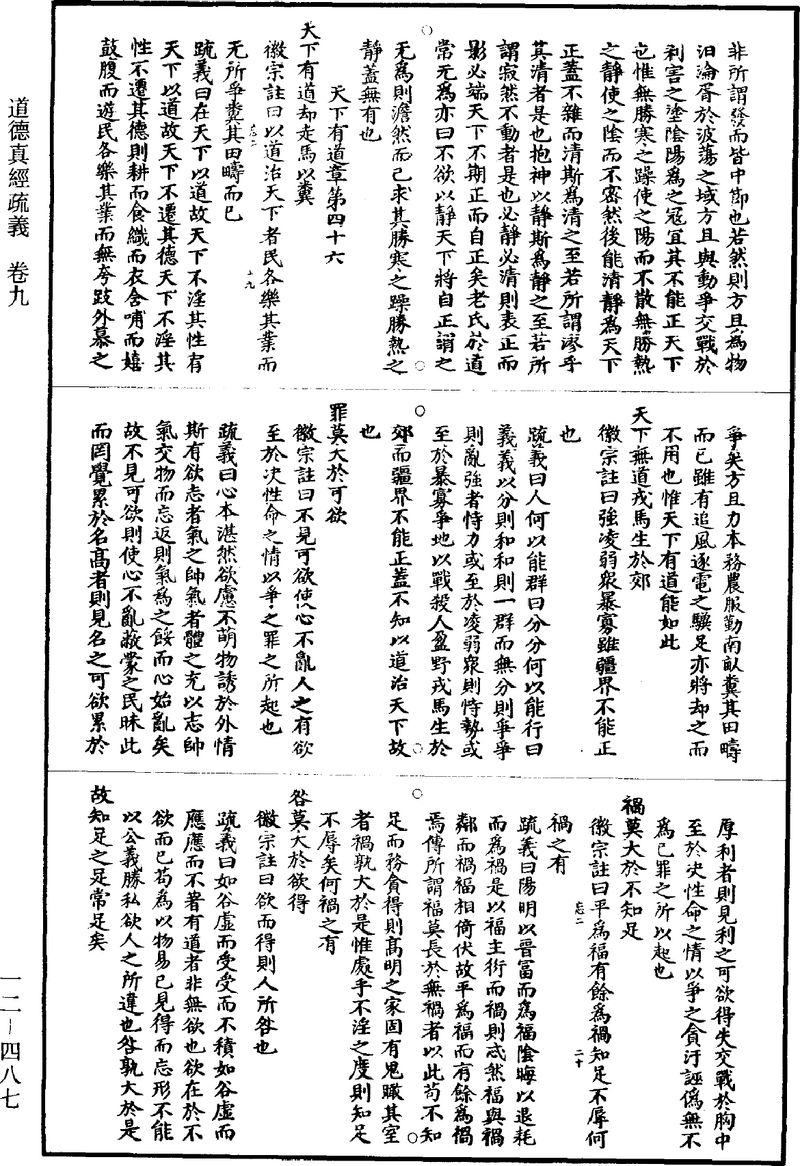 道德真經疏義　卷九
非所謂發而皆中節也若然則方且為物
汩淪胥於波蕩之域方且與動爭交戰於
利害之塗陰陽為之寇宜其不能正天下
也惟無勝寒之躁使之陽而不散無勝熱
之靜使之陰而不密然後能清靜為天下
正蓋不雜而清斯為清之至若所謂漻乎
其清者是也抱神以靜斯為靜之至若所
謂寂然不動者是也必靜必清則表正而
影必端天下不期正而自正矣老氏於道
常无為亦曰不欲以靜天下將自正謂之
无為則澹然而已求其勝寒之躁勝熱之
靜蓋無有也
天下有道章第四十六
天下有道却走馬以糞
徽宗註曰以道治天下者民各樂其業而
无所爭糞其田疇而已
疏義曰在天下以道故天下不淫其性宥
天下以道故天下不遷其德天下不淫其
性不遷其德則耕而食織而衣含哺而嬉
鼓腹而遊民各樂其業而無夸跂外慕之
爭矣方且力本務農服勤南畝糞其田疇
而已雖有追風逐電之驥足亦將却之而
不用也惟天下有道能如此
天下無道戎馬生於郊
徽宗註曰強凌弱衆暴寡雖疆界不能正
也
疏義曰人何以能群曰分分何以能行曰
義義以分則和和則一群而無分則爭爭
則亂強者恃力或至於凌弱衆則恃勢或
至於暴寡爭地以戰殺人盈野戎馬生於
郊而疆界不能正蓋不知以道治天下故
也
罪莫大於可欲
徽宗註曰不見可欲使心不亂人之有欲
至於決性命之情以爭之罪之所起也
疏義曰心本湛然欲慮不萌物誘於外情
斯有欲志者氣之帥氣者體之充以志帥
氣交物而忘返則氣為之餒而心始亂矣
故不見可欲則使心不亂蔽蒙之民昧此
而罔覺累於名高者則見名之可欲累於
厚利者則見利之可欲得失交戰於胸中
至於決性命之情以爭之貪汙誣偽無不
為已罪之所以起也
禍莫大於不知足
徽宗註曰平為福有餘為禍知足不辱何
禍之有
疏義曰陽明以晉冨而為福陰晦以退耗
而為禍是以福主衍而禍則忒然福與禍
鄰而禍福相倚伏故平為福而有餘為禍
焉傳所謂福莫長於無禍者以此苟不知
足而務貪得則高明之家固有鬼瞰其室
者禍孰大於是惟處乎不淫之度則知足
不辱矣何禍之有
咎莫大於欲得
徽宗註曰欲而得則人所咎也
疏義曰如谷虛而受受而不積如谷虛而
應應而不著有道者非無欲也欲在於不
欲而已苟為以物易已見得而忘形不能
以公義勝私欲人之所違也咎孰大於是
故知足之足常足矣
一二－四八七